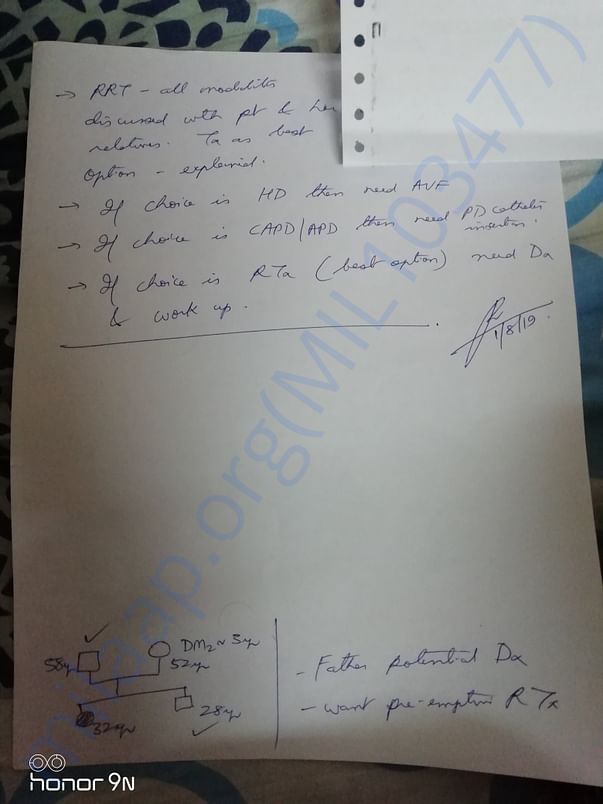 → RRT - all modalities
discussed with pt & her
relatives. Tx as best
option - explained.
→ If choice is HD then need AVF
→ If choice is CAPD/APD then need PD catheter
insertion.
→ If choice is RTx (best option) need Dx
& work up.
1/8/19
58yr
DM2 ~ 5yr
52yr
32yr
28yr
- Father potential Dx
- want pre-emptive RTx
milaap.org(MIL103477)
honor 9N